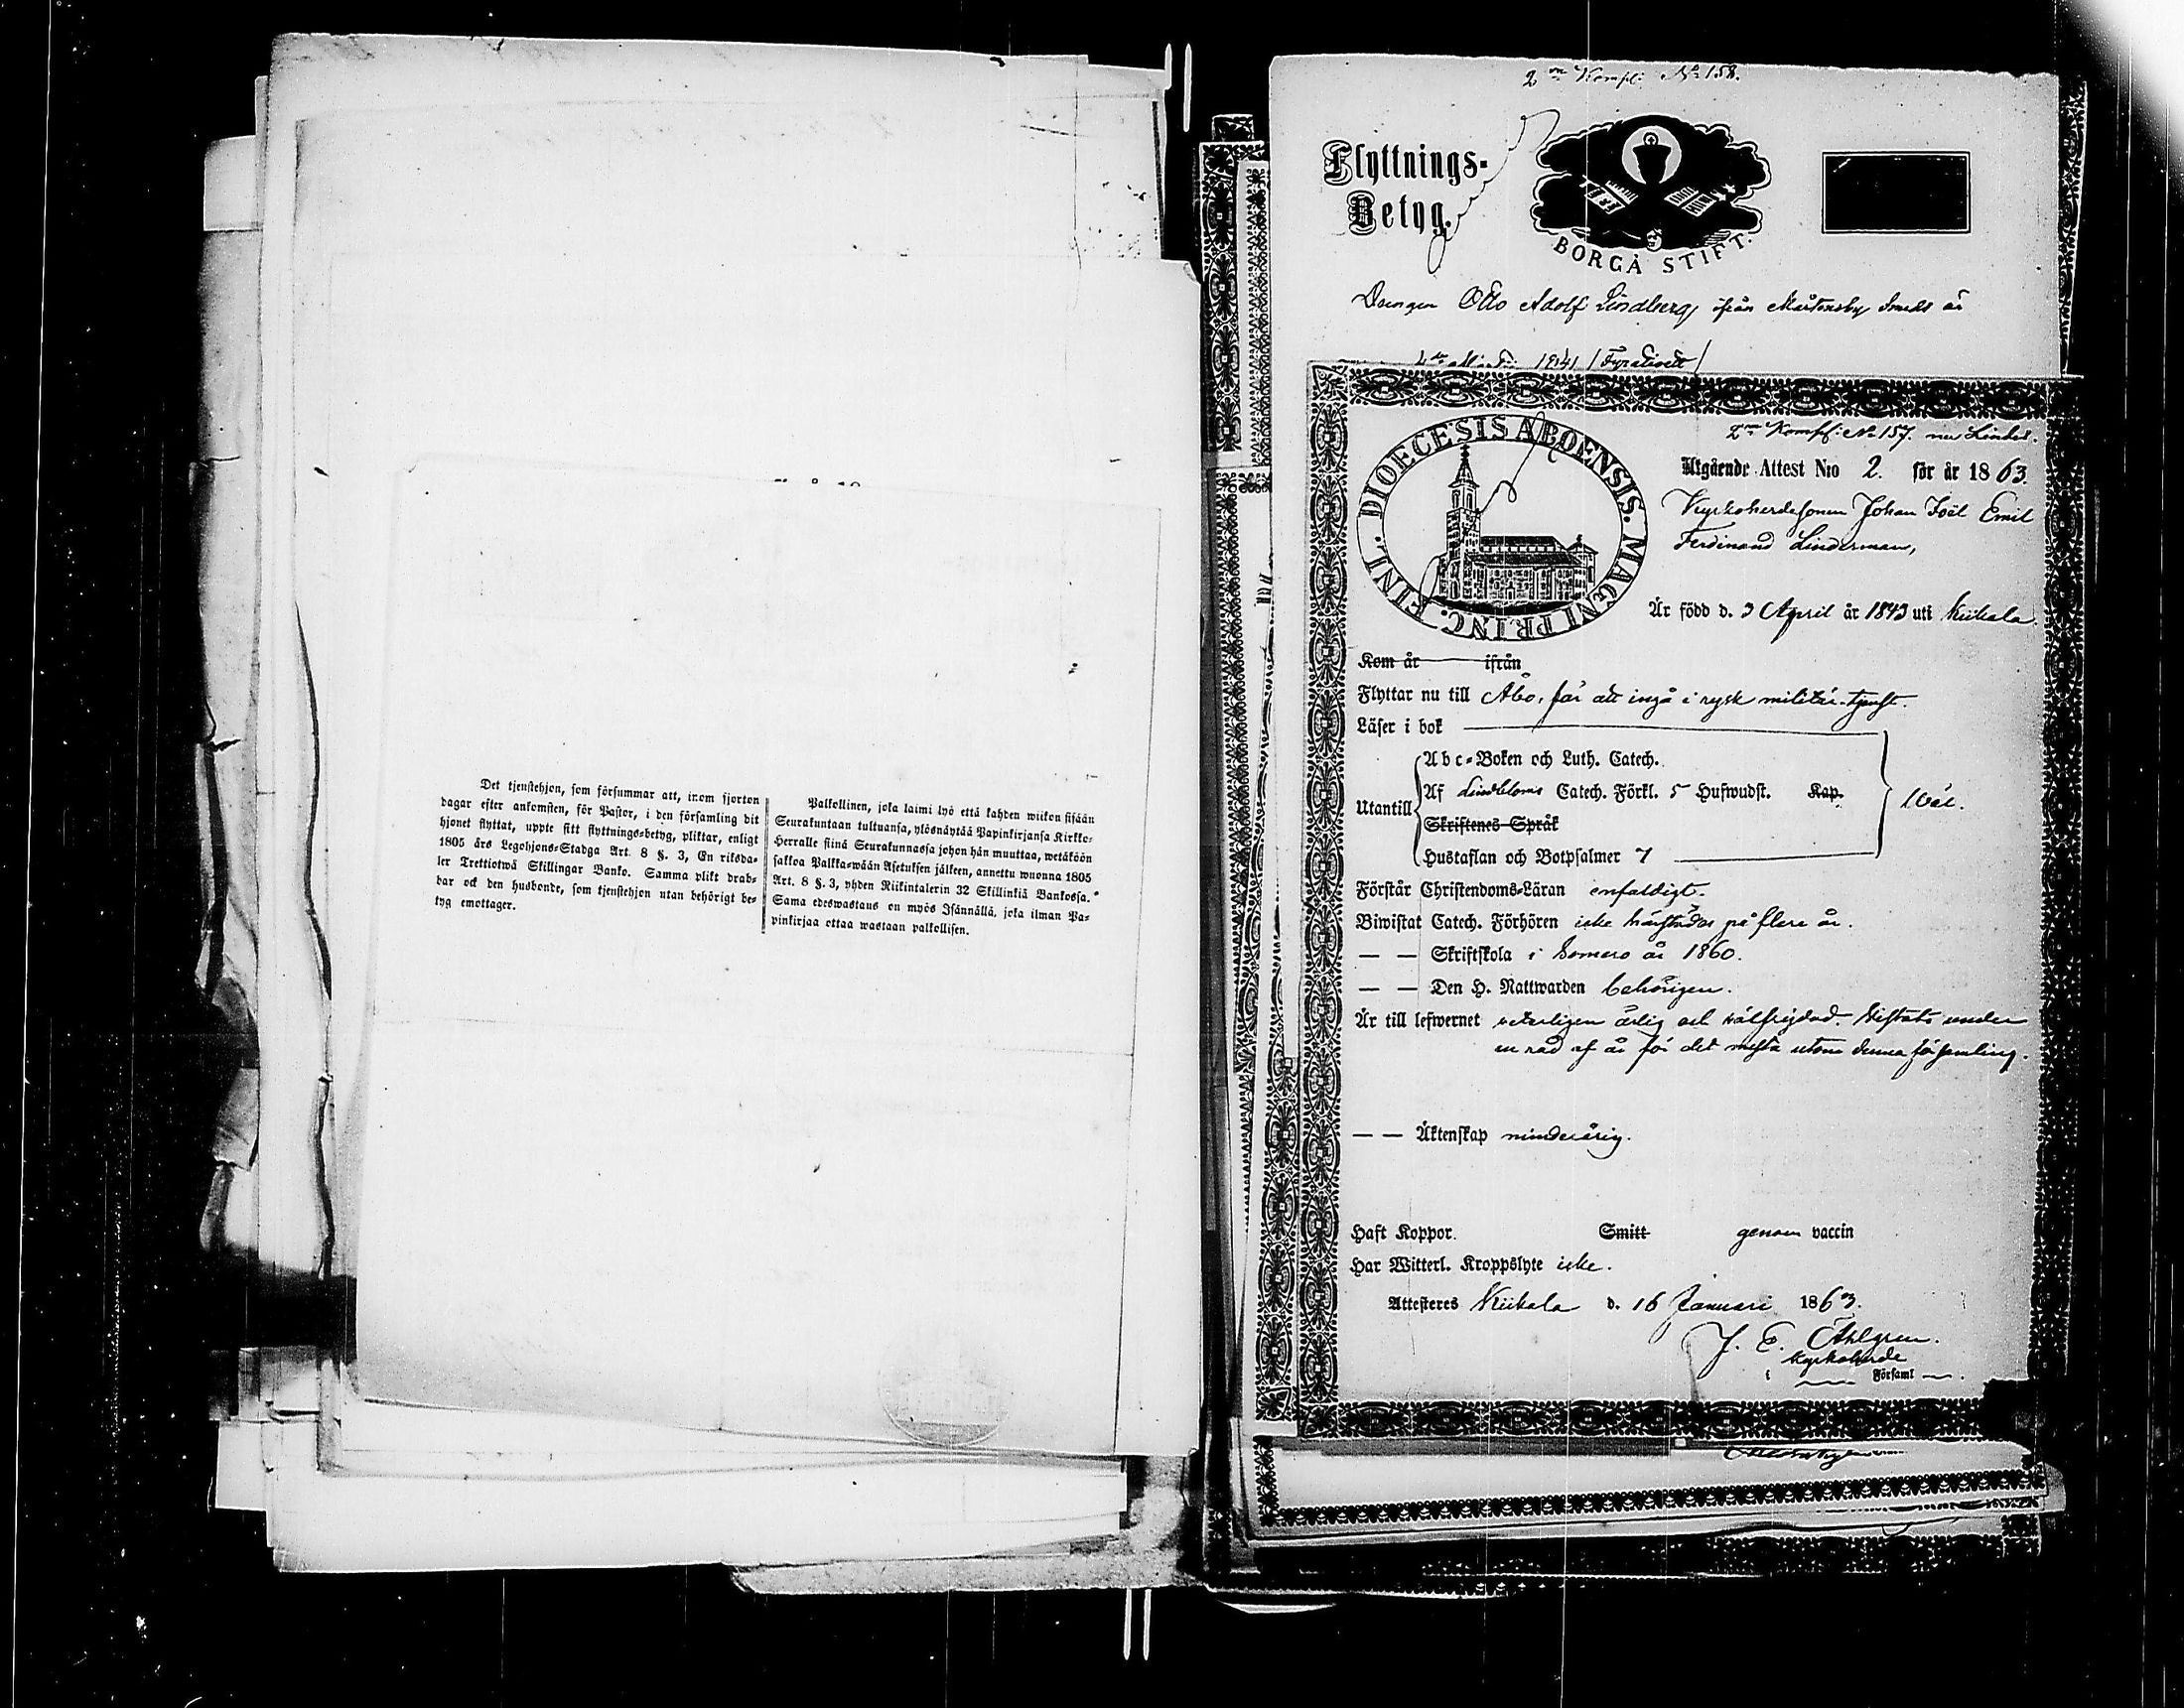 Det tjenstehjon, som försummar att, inom fjorton
dagar efter ankomsten, för Pastor, i den församling dit
hjonet flyttat, uppte sitt flyttnings-betyg, pliktar, enligt
1805 års Legohjons-Stadga Art. 8 §. 3, En riksda-
ler Trettiotwå Skillingar Banko. Samma plikt drab-
bar ock den husbonde, som tjenstehjon utan behörigt be-
tyg emottager.
Palkollinen, joka laimi lyö että kahden wiikon sisään
Seurakuntaan tultuansa, ylösnäytää Papinkirjansa Kirkko-
Herralle siinä Seurakunnassa johon hän muuttaa, wetäköön
sakkoa Palkka-wään Asetuksen jälkeen, annettu wuonna 1805
Art. 8 §. 3, yhden Riikintalerin 32 Skillinkiä Bankossa.
Sama edeswastaus on myös Isännällä, joka ilman Pa-
pinkirjaa ottaa wastaan palkollisen.
2 Kompl: No 158.
Flyttnings-
Betyg.
BORGÅ STIFT.
Drengen Otto Adolf Lindberg ifrån Mårtensby Smeds är
1841 / Fyratioett /
2 Kompl: No 157.
DIOECESIS ABOENSIS. MAGNI PRINC. FINL.
Utgående Attest No 2. för år 1863.
Kyrkoherdesonen Johan Joël Emil
Ferdinand Linderman,
Är född d. 3 April år 1843 uti Kiikala.
Kom år ifrån
Flyttar nu till Åbo, för att ingå i rysk militär-tjenst.
Läser i bok
Abc-Boken och Luth. Catech.
Utantill Af Lindbloms Catech. Förkl. 5 Hufwudst. Kap. Wäl.
Skriftenes Språk
Hustaflan och Botpsalmer 7
Förstår Christendoms-Läran enfaldigt.
Biwistat Catech. Förhören icke härstädes på flere år.
— — Skriftskola i Somero år 1860.
— — Den H. Nattwarden behörigen.
Är till lefwernet veterligen ärlig och wälfrejdad. Vistats under
en rad af år för det mesta utom denna församling.
— — Äktenskap minderårig.
Haft Koppor. Smitt genom vaccin
Har Witterl. Kroppslyte icke.
Attesteres Kiikala d. 16 Januari 1863.
J. E. Öhlgren.
Kyrkoherde
i Församl